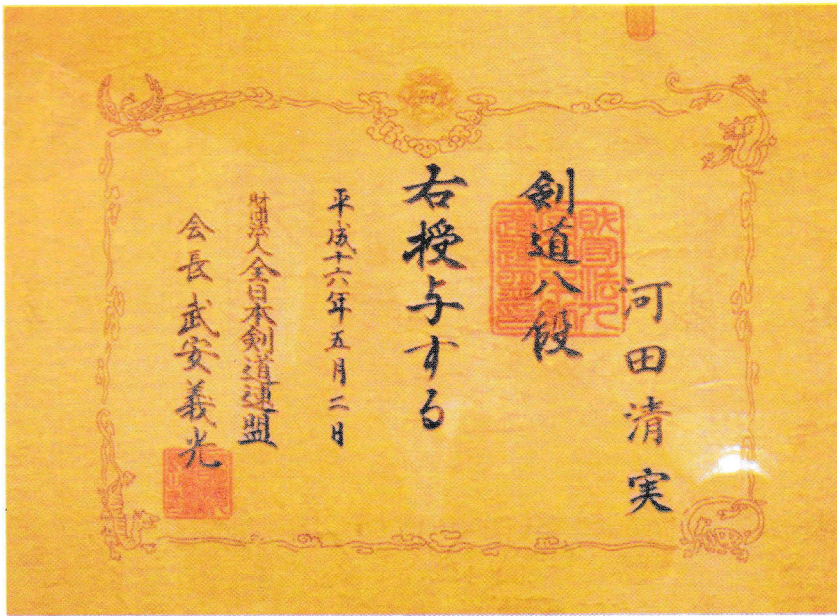 河田清実
剣道八段
右授与する
平成十六年五月二日
財団法人全日本剣道連盟
会長武安義光